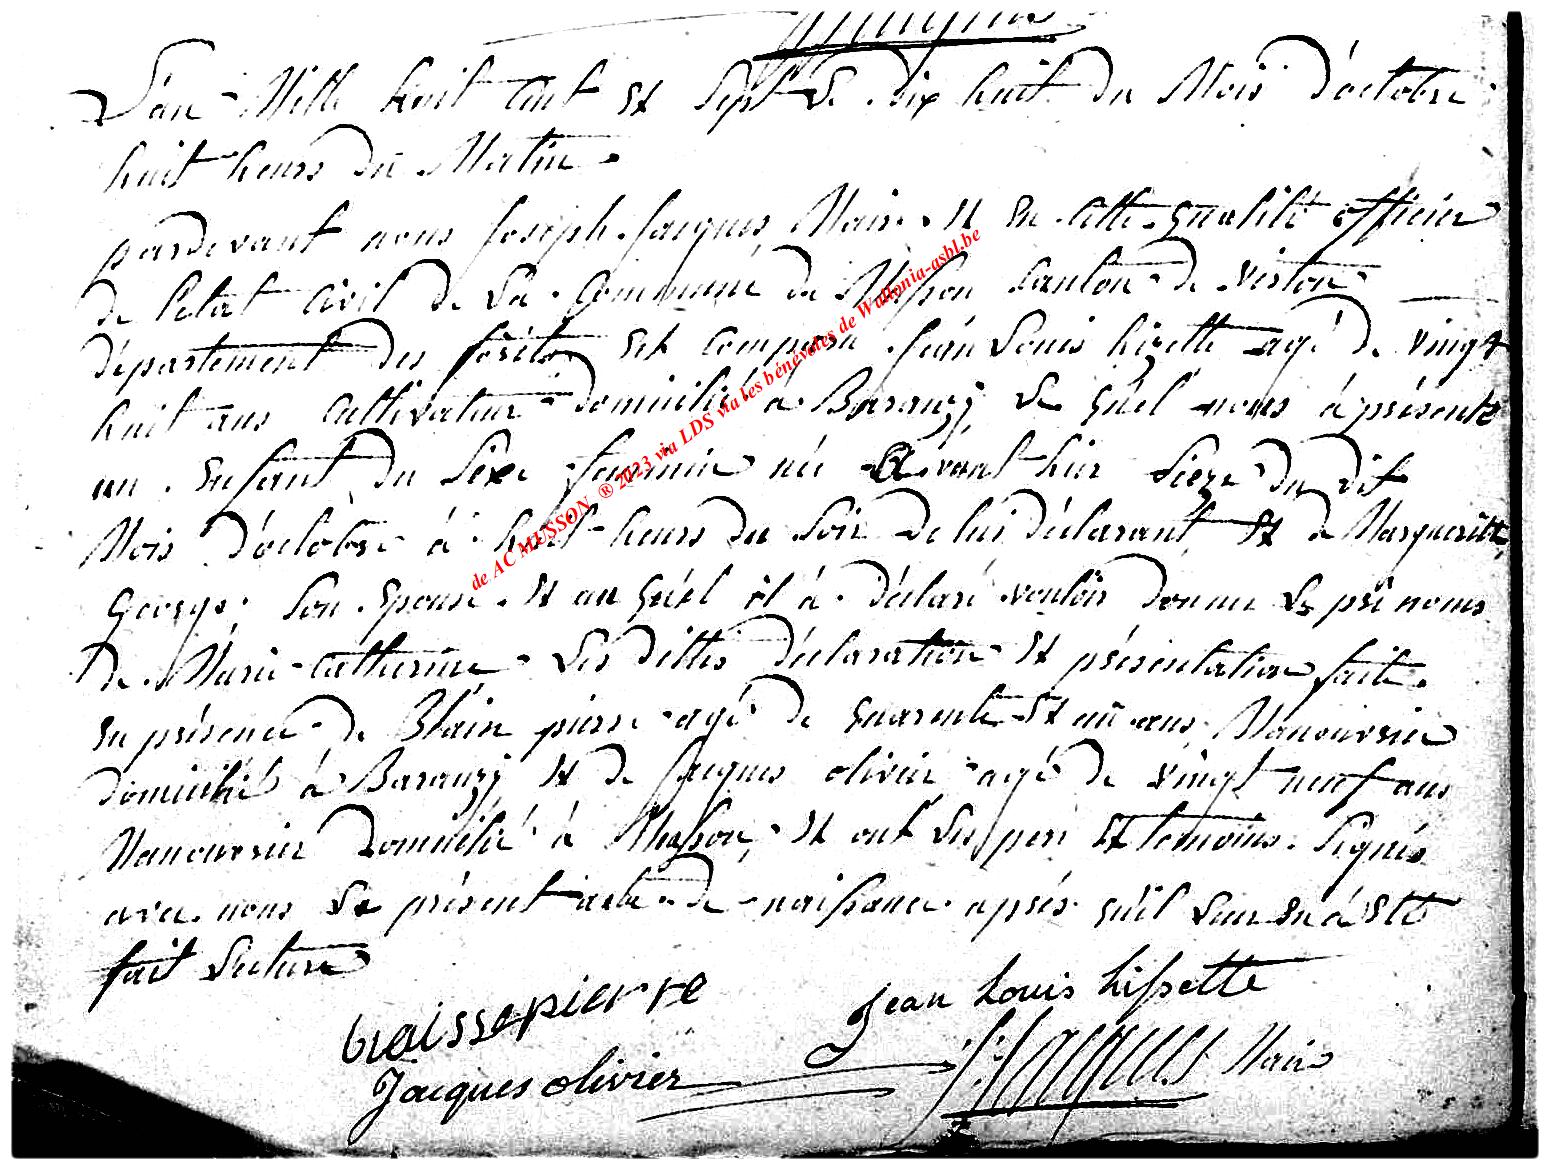 L'an Mille huit cent et sept le dix huit du Mois d'octobre
huit heurs du Matin.
pardevant nous Joseph Jacques, Maire et en cette qualité officier
de l'etat civil de la Commune de Musson Canton de virton
département des forêts est comparu Jean Louis hizette agé de vingt
huit ans cultivateur domicilié à Baranzÿ, le quel nous à présenté
un enfant du sexe feminin né avant hier sieze du dit
Mois d'octobre à huit heurs du soir de lui déclarant et de Margueritte
George, son epouse et au quel il à déclaré vouloir donner les prénoms
de Marie-Catherine. les dittes déclaration et présentation faite
en présence de Blain pierre agé de quarente et un ans, Manouvrier
domicilié à Baranzÿ et de Jacques olivier agé de vingt neuf ans
Manouvrier domicilié à Musson, et ont les pere et temoins signés
avec nous le présent acte de naissance après qu'il leur en à eté
fait lecture
Jean Louis hissette
pierre
Jacques olivier
J: Jacques Maire
de AC MUSSON ® 2023 via LDS via les bénévoles de Wallonia-asbl.be